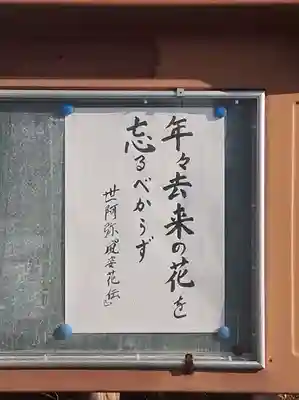 年々去来の花を
忘るべからず
世阿弥『風姿花伝』